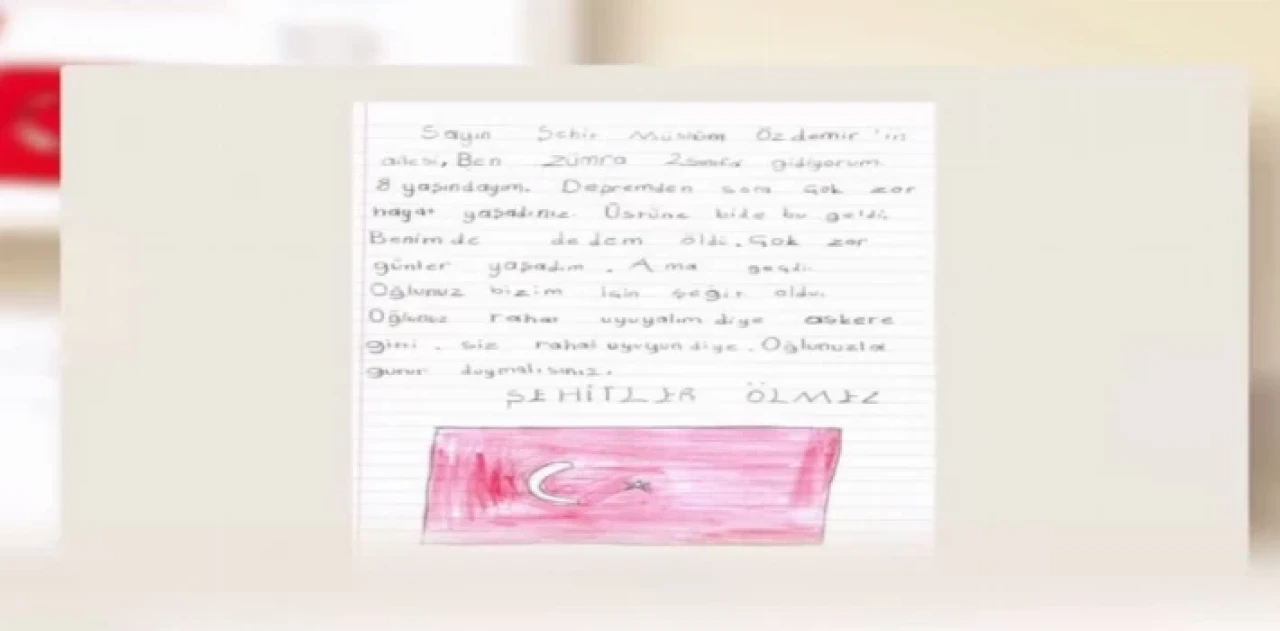 Sayın Şehit Müslüm Özdemir'in
ailesi, Ben Zümra 2.sınıfa gidiyorum.
8 yaşındayım. Depremden sora çok zor
hayat yaşadınız. Üstüne bide bu geldi.
Benimde dedem öldi. Çok zor
günler yaşadım. Ama geçdi.
Oğlunuz bizim için şeğit oldu.
Oğlunuz rahat uyuyalım diye askere
giti. siz rahat uyuyun diye. Oğlunuzla
gurur duymalısınız.
ŞEHİTLER ÖLMEZ